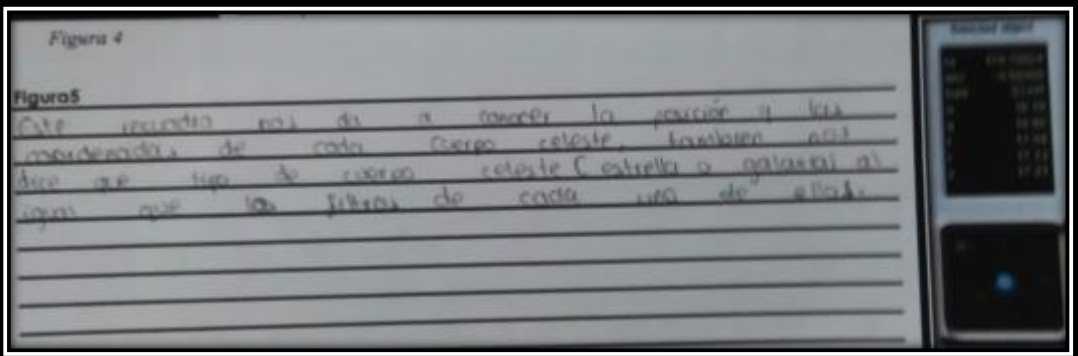 Figura 4
Figura5
Este recuadro nos da a conocer la posición y las
coordenadas de cada cuerpo celeste, tambien nos
dice que tipo de cuerpo celeste (estrella o galaxia) al
igual que los filtros de cada una de ellas.
Selected object